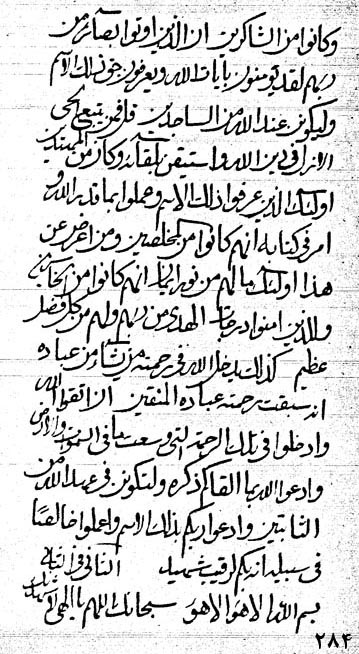 وكانوا من الشاكرين ان الذين اوتوا بصائر من
ربهم لقد يؤمنون بايات الله ويعرفون حق تلك الاسم
وليكونن عند الله من الساجدين قل فمن يتبع
الامر في دين الله واستيقن بلقائه وكان من المهتدين
اولئك الذين عرفوا ذلك الاسم وعملوا بما قد الله
امر في كتابه انهم كانوا من المخلصين ومن اعرض عن
هذا اولئك ما لهم من نور ايمان انهم كانوا من
والذين امنوا درجات الهدى من ربهم ولهم من كل فضل
عظيم كذلك يدخل الله في رحمته من يشاء من عباده
انه سبقت رحمته عباده المتقين ان اتقوا الله
وادخلوا في تلك الرحمة التي وسعت ما في السموات والارض
وادعوا الله بما القاكم ذكره ولتكونن في عبد الله من
الثابتين وادعوا ربكم بذلك الاسم واعملوا خالصا
في سبيله انه بكم لرقيب شهيد الثاني في الثاني
بسم الله لا هو الا هو سبحانك اللهم يا الهي
٢٨٤